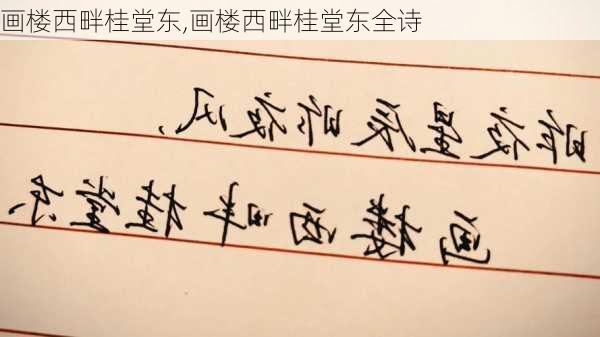 画楼西畔桂堂东,画楼西畔桂堂东全诗
昨夜星辰昨夜风,
画楼西畔桂堂东、